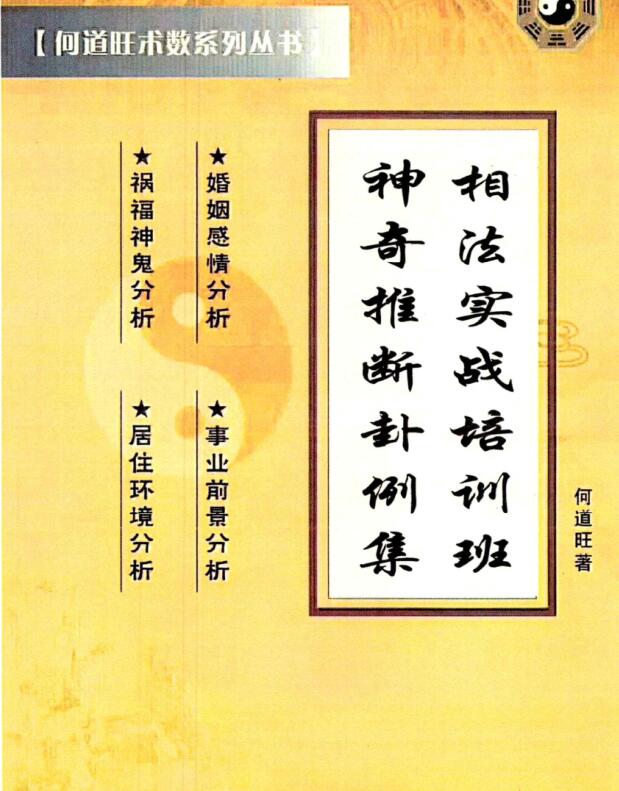 【何道旺术数系列丛书】
相法实战培训班
神奇推断卦例集
何道旺著
★婚姻感情分析
★事业前景分析
★祸福神鬼分析
★居住环境分析